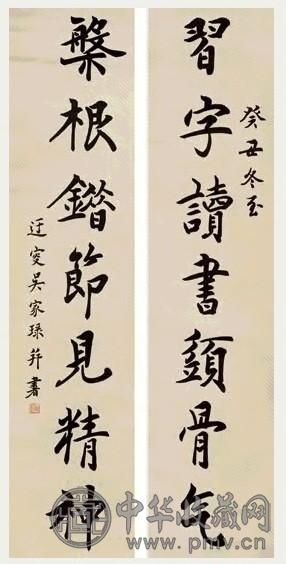 癸丑冬至
習字讀書須骨气
槃根錯節見精神
迂叟吳家琭并書
中华收藏网
www.pmv.cn